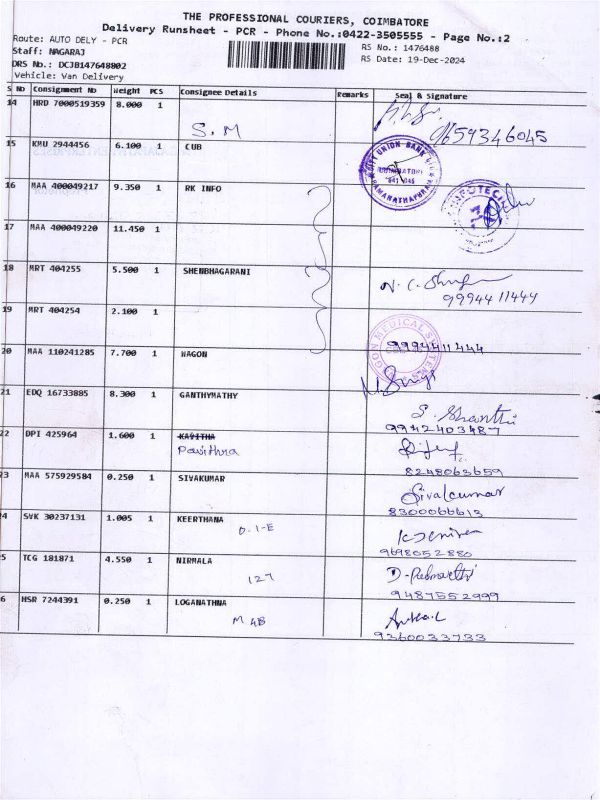 THE PROFESSIONAL COURIERS, COIMBATORE
Delivery Runsheet - PCR - Phone No.:0422-3505555 - Page No.:2
Route: AUTO DELY - PCR
RS No.: 1476488
Staff: NAGARAJ
RS Date: 19-Dec-2024
DRS No.: DCJB147648802
Vehicle: Van Delivery
S No Consignment No Weight PCS Consignee Details Remarks Seal & Signature
14 HRD 7000519359 8.000 1
S.M
9659346045
15 KMU 2944456 6.100 1 CUB
CITY UNION BANK LTD
COIMBATORE
641 045
RAMANATHAPURAM
16 MAA 400049217 9.350 1 RK INFO
INFOTECH
17 MAA 400049220 11.450 1
18 MRT 404255 5.500 1 SHENBHAGARANI
9994411444
19 MRT 404254 2.100 1
9994411444
20 MAA 110241285 7.700 1 WAGON
WAGON MEDICAL SYSTEMS
21 EDQ 16733885 8.300 1 GANTHYMATHY
S. Shanthi
9942403487
22 DPI 425964 1.600 1 KAVITHA
Pavithra
8248063659
23 MAA 575929584 0.250 1 SIVAKUMAR
Sivakumar
8300066613
24 SVK 30237131 1.005 1 KEERTHANA
D-1-E
9698052880
5 TCG 181871 4.550 1 NIRMALA
127
9487552999
6 HSR 7244391 0.250 1 LOGANATHNA
M 4B
9360033733